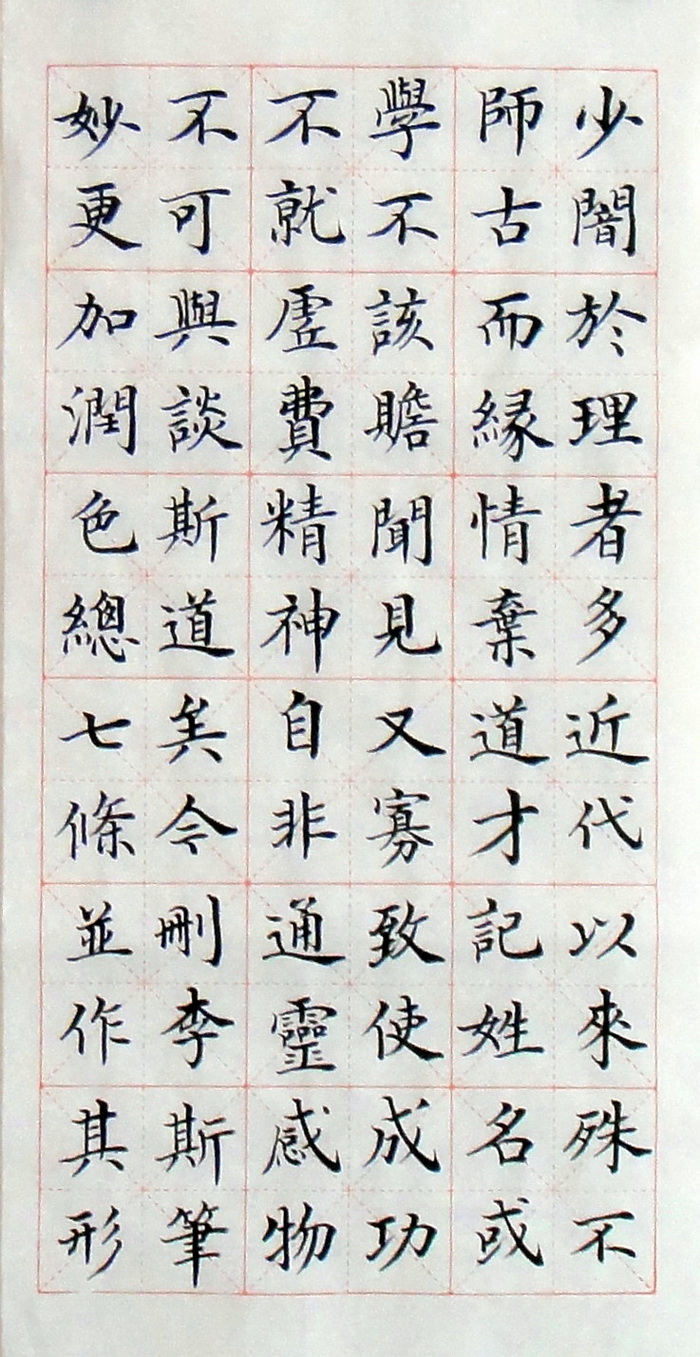 少闇於理者多近代以來殊不
師古而緣情棄道才記姓名或
學不該贍聞見又寡致使成功
不就虛費精神自非通靈感物
不可與談斯道矣今刪李斯筆
妙更加潤色總七條並作其形